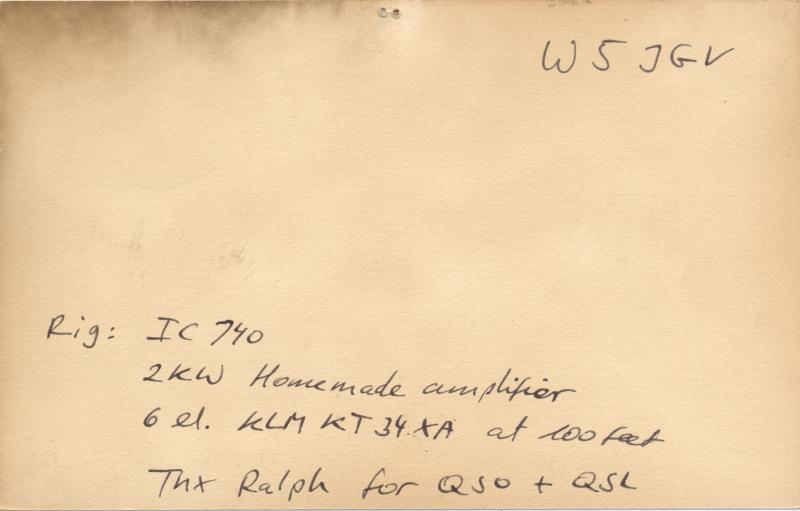 W5JGV
Rig: IC 740
2KW Homemade amplifier
6 el. KLM KT34XA at 100 feet
Thx Ralph for QSO + QSL